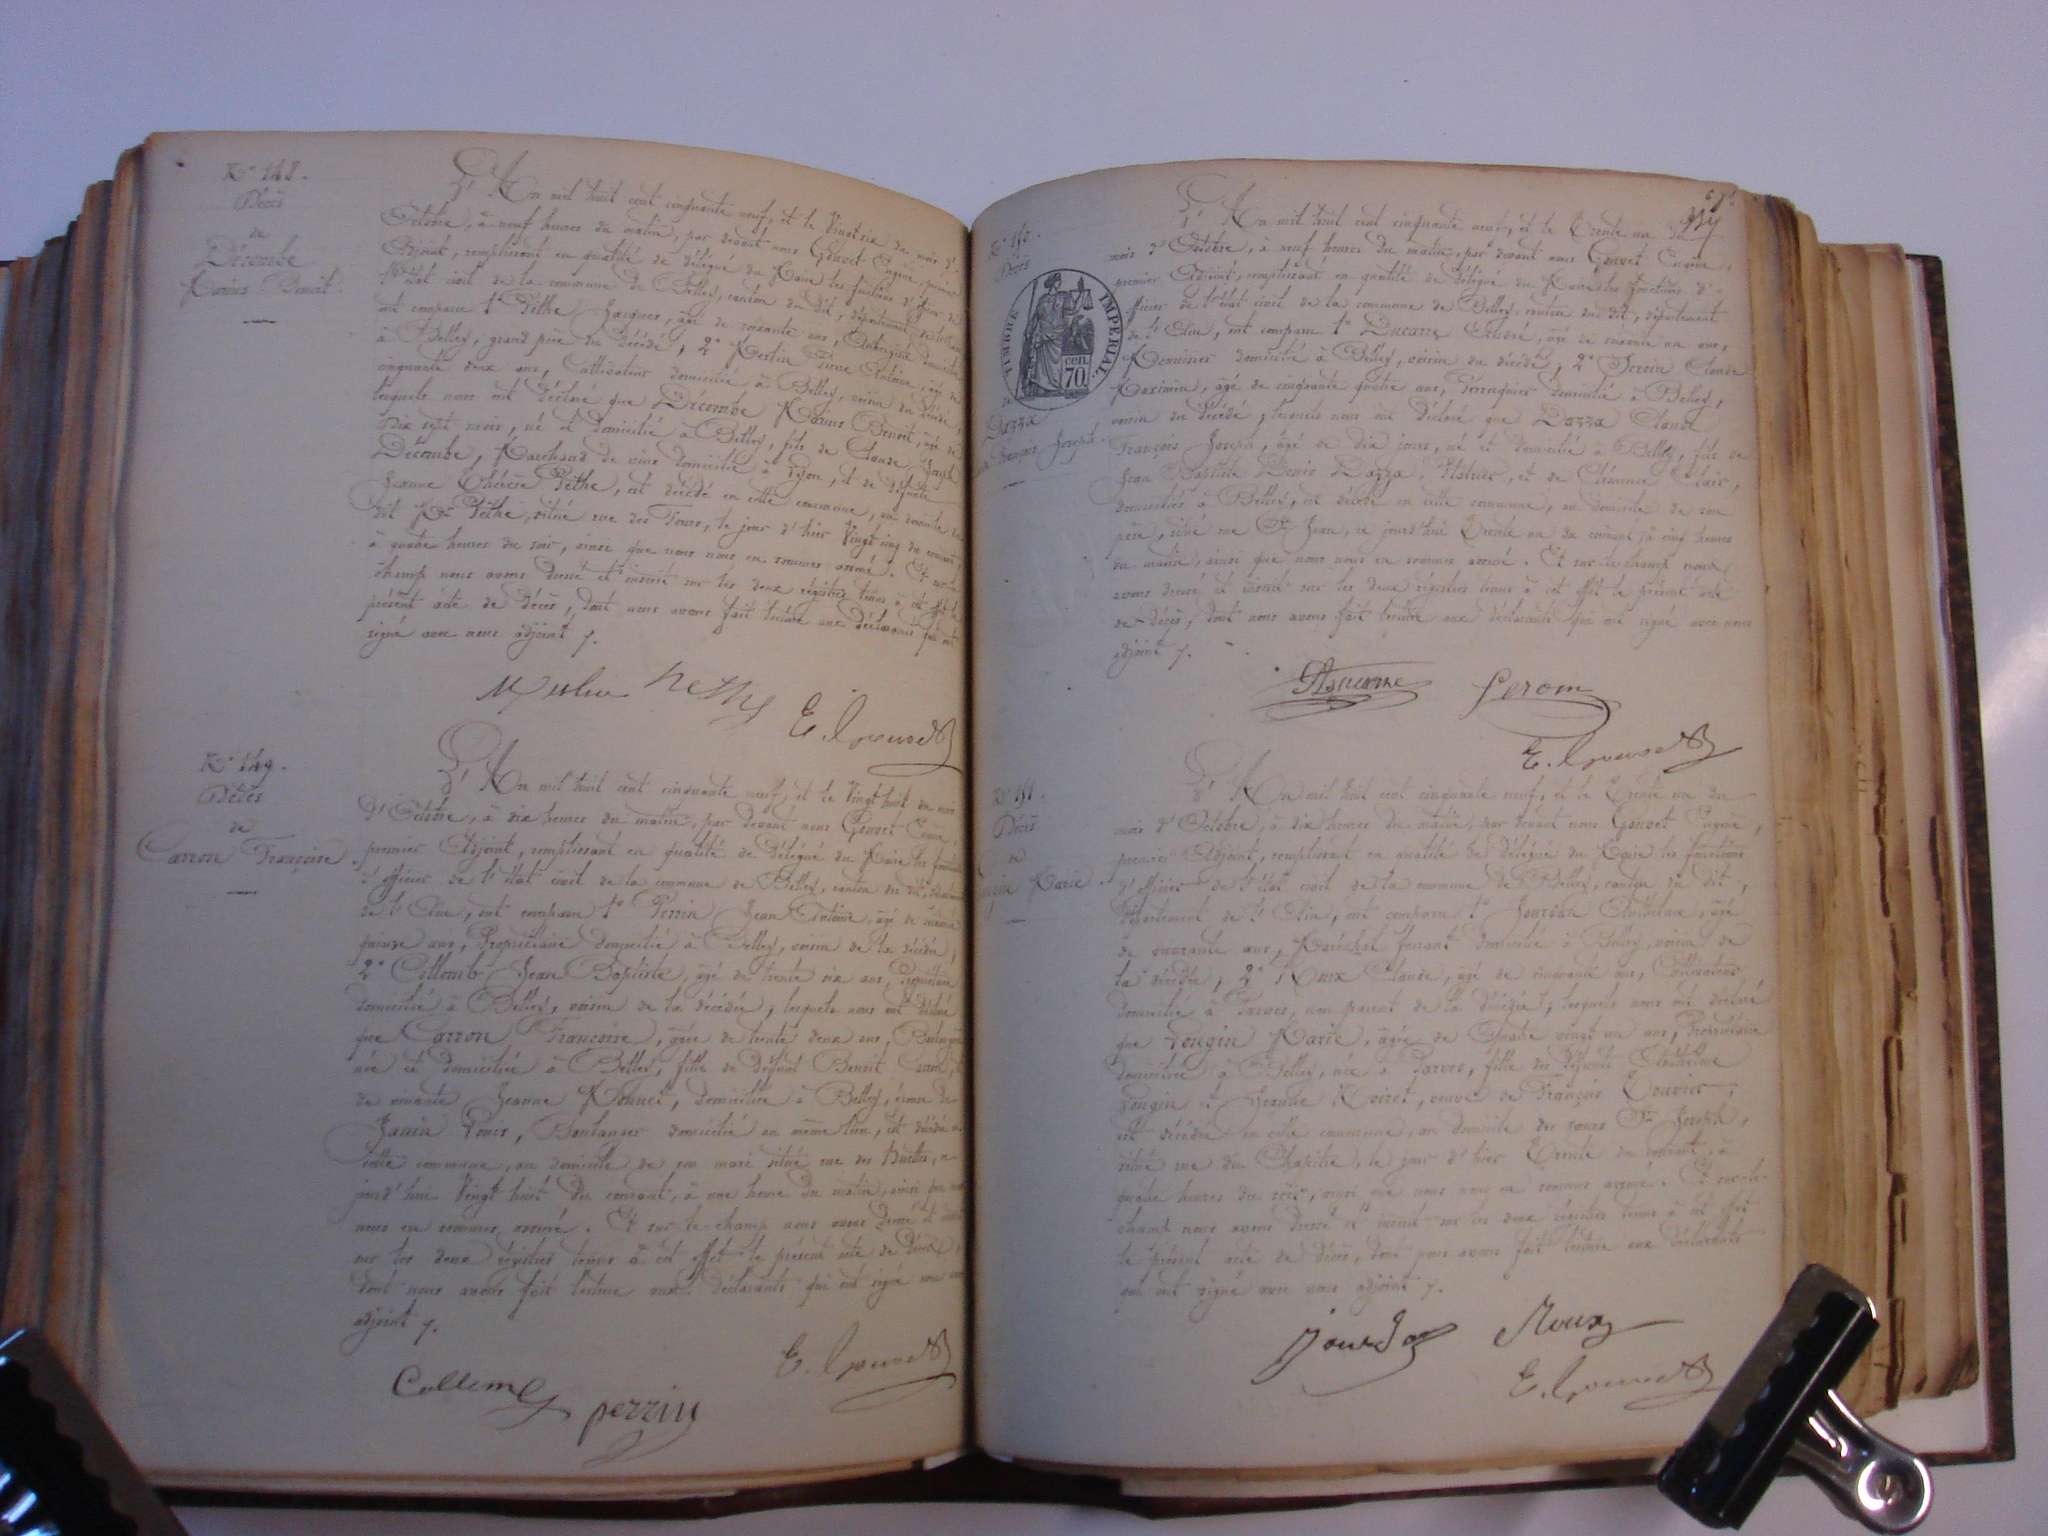 N° 148.
Décès
de
Décombe
Marius Benoit.
L'An mil huit cent cinquante neuf, et le Vingt six du mois d'
Octobre, à neuf heures du matin, par devant nous Gouvet Eugène, premier
Adjoint, remplissant en qualité de délégué du Maire les fonctions d'officier de
l'état civil de la commune de Belley, canton du dit, département de l'Ain
ont comparu 1° Péthe Jacques, âgé de soixante ans, domicilié
à Belley, grand père du décédé, 2° Pierre Antoine, âgé de
cinquante deux ans, Cultivateur domicilié à Belley, voisin du décédé,
lesquels nous ont déclaré que Décombe Marius Benoit, âgé de
dix sept mois, né et domicilié à Belley, fils de Claude Joseph
Décombe, Marchand de vins domicilié à Lyon, et de défunte
Jeanne Thérèse Péthe, est décédé en cette commune, au domicile du
dit Péthe, situé rue des Tours, le jour d'hier Vingt cinq du courant,
à quatre heures du soir, ainsi que nous nous en sommes assuré. Et sur le
champ nous avons dressé et inscrit sur les deux régistres tenus à cet effet le
présent acte de décès, dont nous avons fait lecture aux déclarants qui ont
signé avec nous adjoint.
E. Gouvet
N° 149.
Décès
de
Carron Françoise.
L'An mil huit cent cinquante neuf, et le Vingt huit du mois
d'Octobre, à dix heures du matin, par devant nous Gouvet Eugène,
premier Adjoint, remplissant en qualité de délégué du Maire les fonctions
d'officier de l'état civil de la commune de Belley, canton du dit, département
de l'Ain, ont comparu 1° Perrin Jean Antoine, âgé de
quinze ans, Propriétaire domicilié à Belley, voisin de la décédée,
2° Collomb Jean Baptiste, âgé de trente six ans, Propriétaire
domicilié à Belley, voisin de la décédée, lesquels nous ont déclaré
que Carron Françoise, âgée de trente deux ans, Boulangère
née et domiciliée à Belley, fille de défunt Benoit Carron, et
de vivante Jeanne, domiciliée à Belley, épouse de
Janin Louis, Boulanger domicilié au même lieu, est décédée en
cette commune, au domicile de son mari situé rue des, ce
jourd'hui Vingt huit du courant, à une heure du matin, ainsi que nous
nous en sommes assuré. Et sur le champ nous avons dressé et inscrit
sur les deux régistres tenus à cet effet le présent acte de décès,
dont nous avons fait lecture aux déclarants qui ont signé avec nous
adjoint.
Collomb
perrin
E. Gouvet
N° 150.
Décès
de
Dazza
François Joseph.
TIMBRE IMPERIAL
cen.
70
L'An mil huit cent cinquante neuf, et le Trente un du
mois d'Octobre, à neuf heures du matin, par devant nous Gouvet Eugène,
premier Adjoint, remplissant en qualité de délégué du Maire les fonctions d'
officier de l'état civil de la commune de Belley, canton du dit, département
de l'Ain, ont comparu 1° Ducarre, âgé de
Menuisier domicilié à Belley, voisin du décédé, 2° Claude
Maximin, âgé de cinquante quatre ans, Perruquier domicilié à Belley,
voisin du décédé, lesquels nous ont déclaré que Dazza Claude
François Joseph, âgé de dix jours, né et domicilié à Belley, fils de
Jean Baptiste Denis Dazza, et de Clémence Clair,
domiciliés à Belley, est décédé en cette commune, au domicile de son
père, situé rue St Jean, ce jourd'hui Trente un du courant, à cinq heures
du matin, ainsi que nous nous en sommes assuré. Et sur le champ nous
avons dressé et inscrit sur les deux régistres tenus à cet effet le présent acte
de décès, dont nous avons fait lecture aux déclarants qui ont signé avec nous
adjoint.
E. Gouvet
N° 151.
Décès
de
Marie.
L'An mil huit cent cinquante neuf, et le Trente un du
mois d'Octobre, à dix heures du matin, par devant nous Gouvet Eugène,
premier Adjoint, remplissant en qualité de délégué du Maire les fonctions
d'officier de l'état civil de la commune de Belley, canton du dit,
département de l'Ain, ont comparu 1° Jourdan Anthelme, âgé
de quarante ans, Maréchal ferrant domicilié à Belley, voisin de
la décédée, 2° Roux Claude, âgé de cinquante ans, Cultivateur
domicilié à Parves, non parent de la décédée, lesquels nous ont déclaré
que Marie, âgée de Quatre vingt un ans, Propriétaire
domiciliée à Belley, née à Parves, fille de défunts Anthelme
et Jeanne, veuve de François,
est décédée en cette commune, au domicile des sœurs St Joseph,
situé rue du Chapitre, le jour d'hier Trente du courant, à
quatre heures du soir, ainsi que nous nous en sommes assuré. Et sur le
champ nous avons dressé et inscrit sur les deux régistres tenus à cet effet
le présent acte de décès, dont nous avons fait lecture aux déclarants
qui ont signé avec nous adjoint.
Roux
E. Gouvet